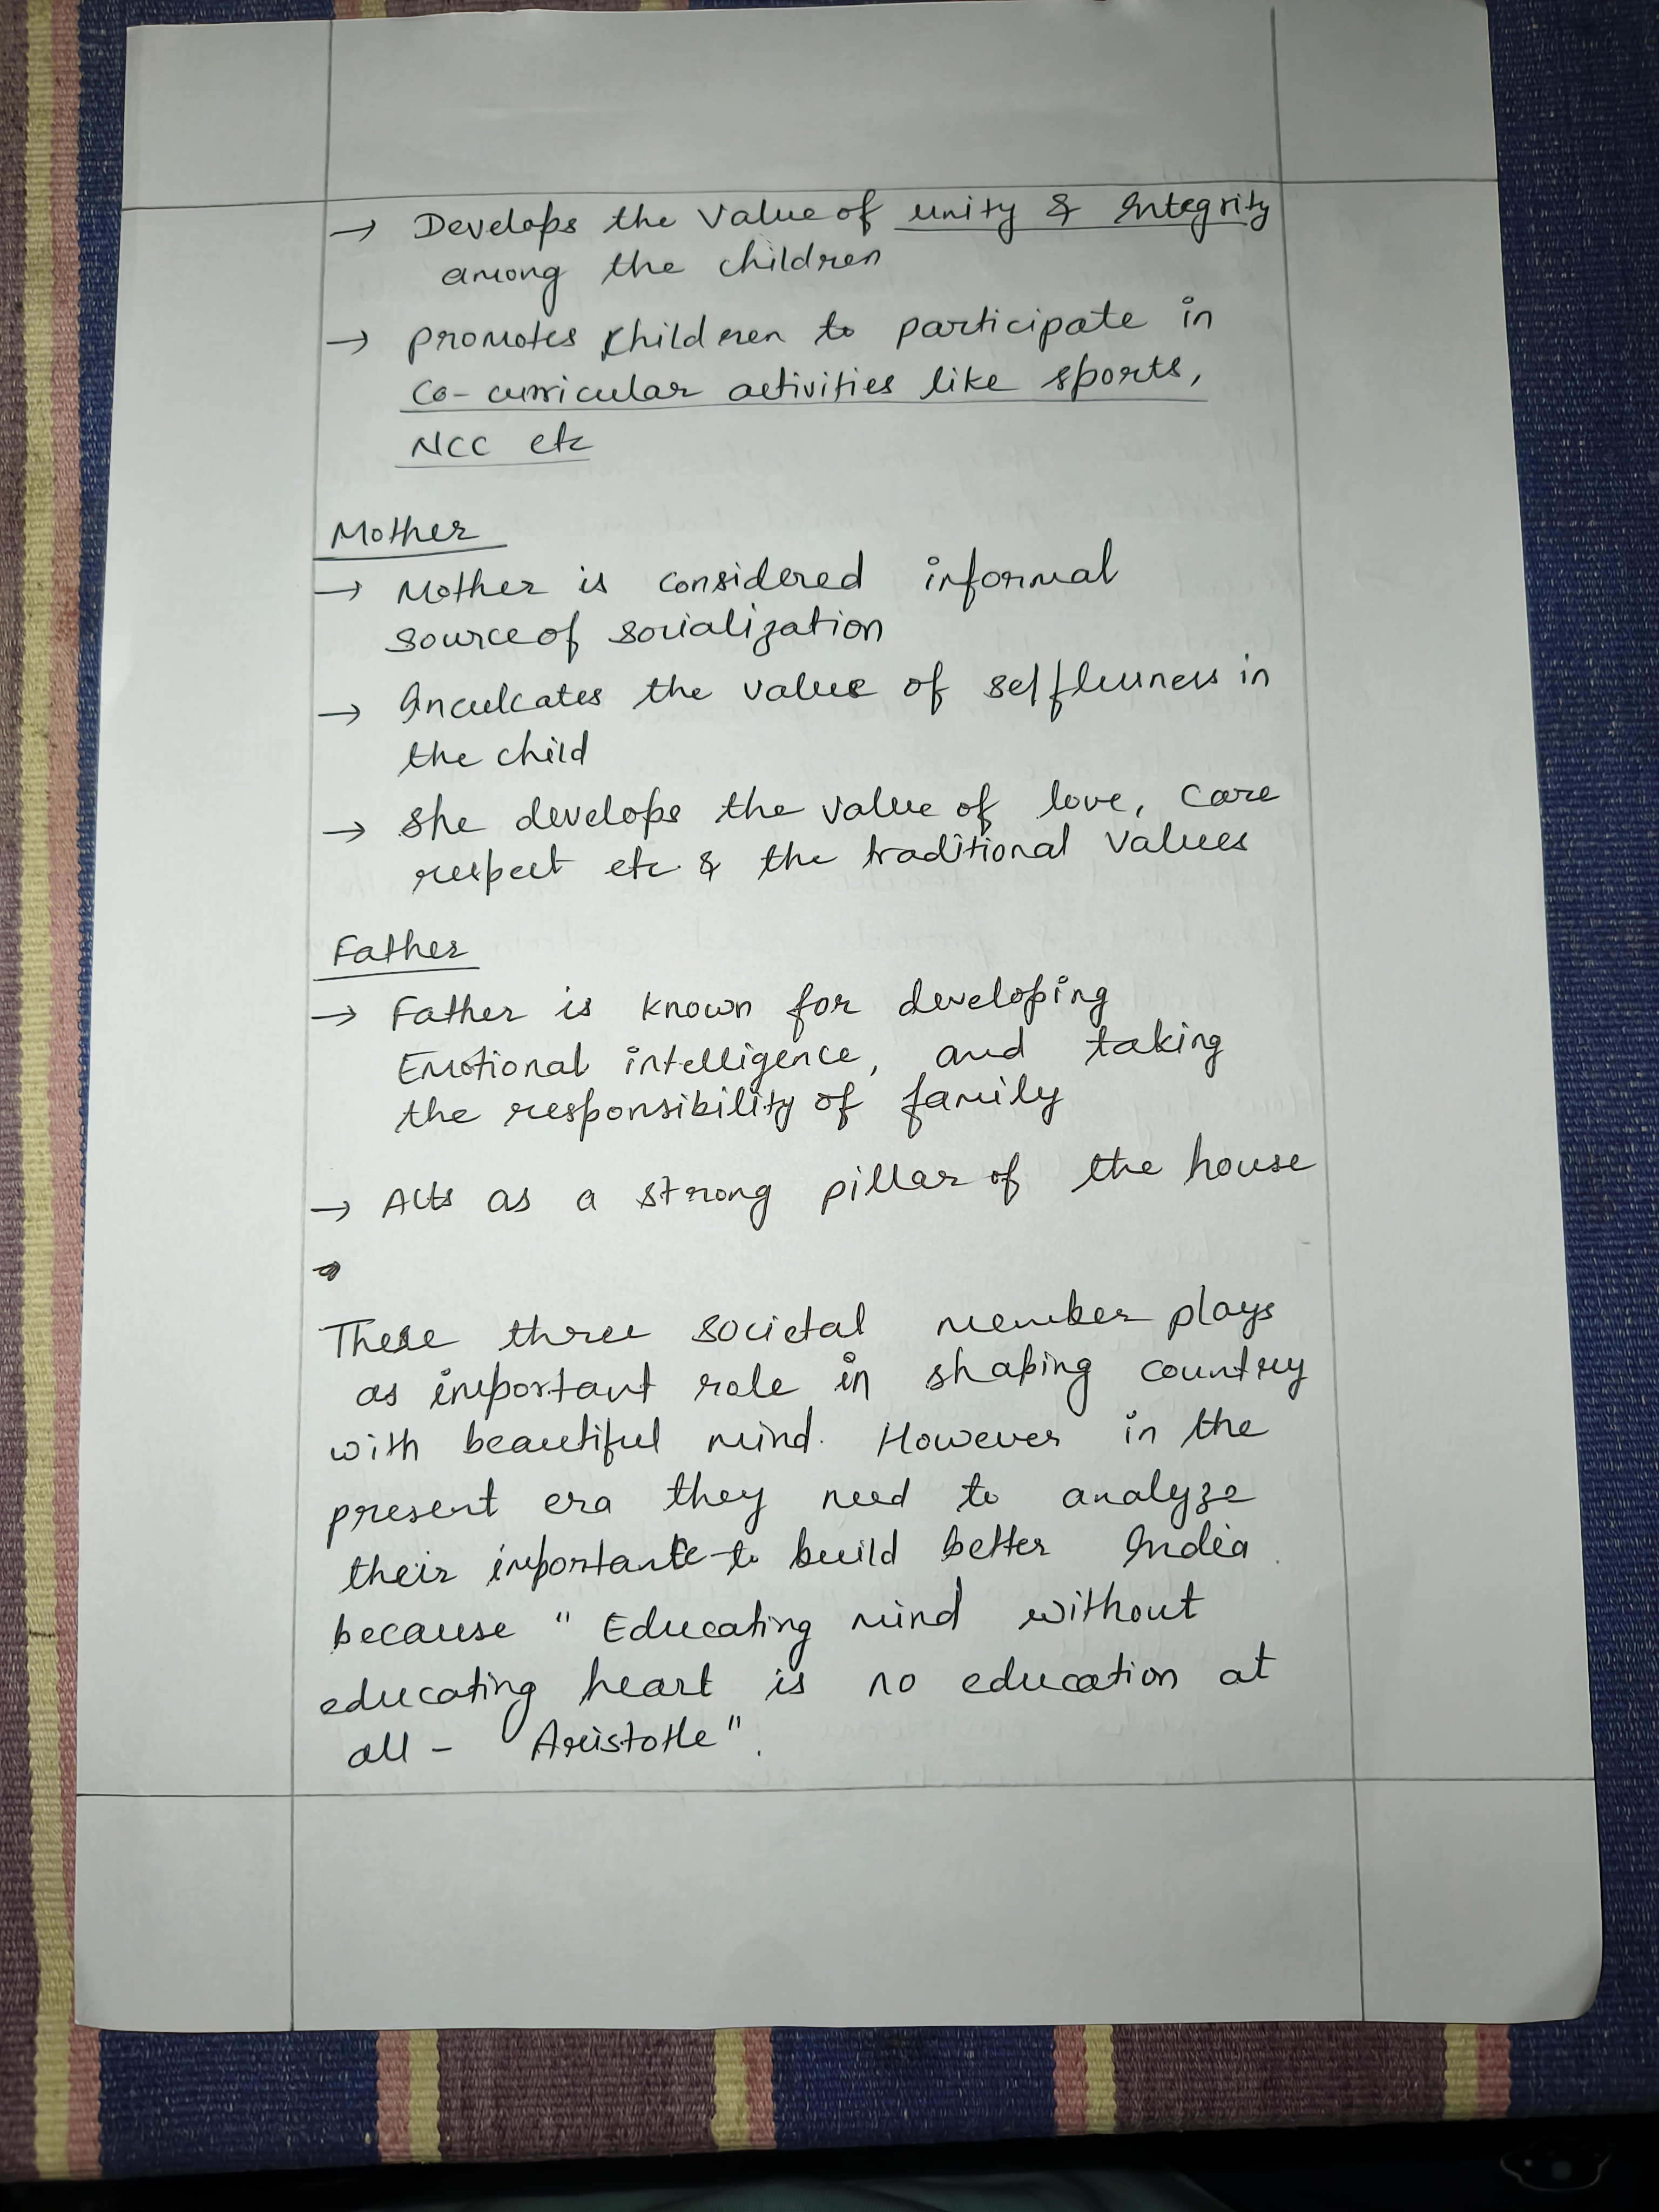 → Develops the value of unity & Integrity
among the children
→ promotes children to participate in
Co-curricular activities like sports,
NCC etc
Mother
→ Mother is considered informal
source of socialization
→ Inculcates the value of selflessness in
the child
→ She develops the value of love, care
respect etc. & the traditional values
Father
→ Father is known for developing
Emotional intelligence, and taking
the responsibility of family
→ Acts as a strong pillar of the house
These three societal member plays
as important role in shaping country
with beautiful mind. However in the
present era they need to analyze
their importance to build better India
because " Educating mind without
educating heart is no education at
all - Aristotle".